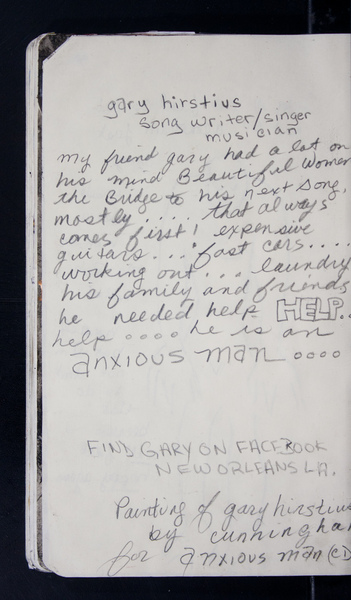 gary hirstius
song writer/singer
musician
my friend gary had a lot on
his mind Beautiful women
the Bridge to his next song,
mostly..... that always
comes first! expensive
guitars... fast cars....
working out... laundry
his family and friends
he needed help HELP..
help .... he is an
anxious man ....
FIND GARY ON FACEBOOK
NEW ORLEANS LA.
Painting of gary hirstius
by cunningham
for anxious man (CD)